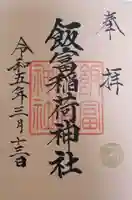 奉拝
飯富稲荷神社
令和五年三月十三日